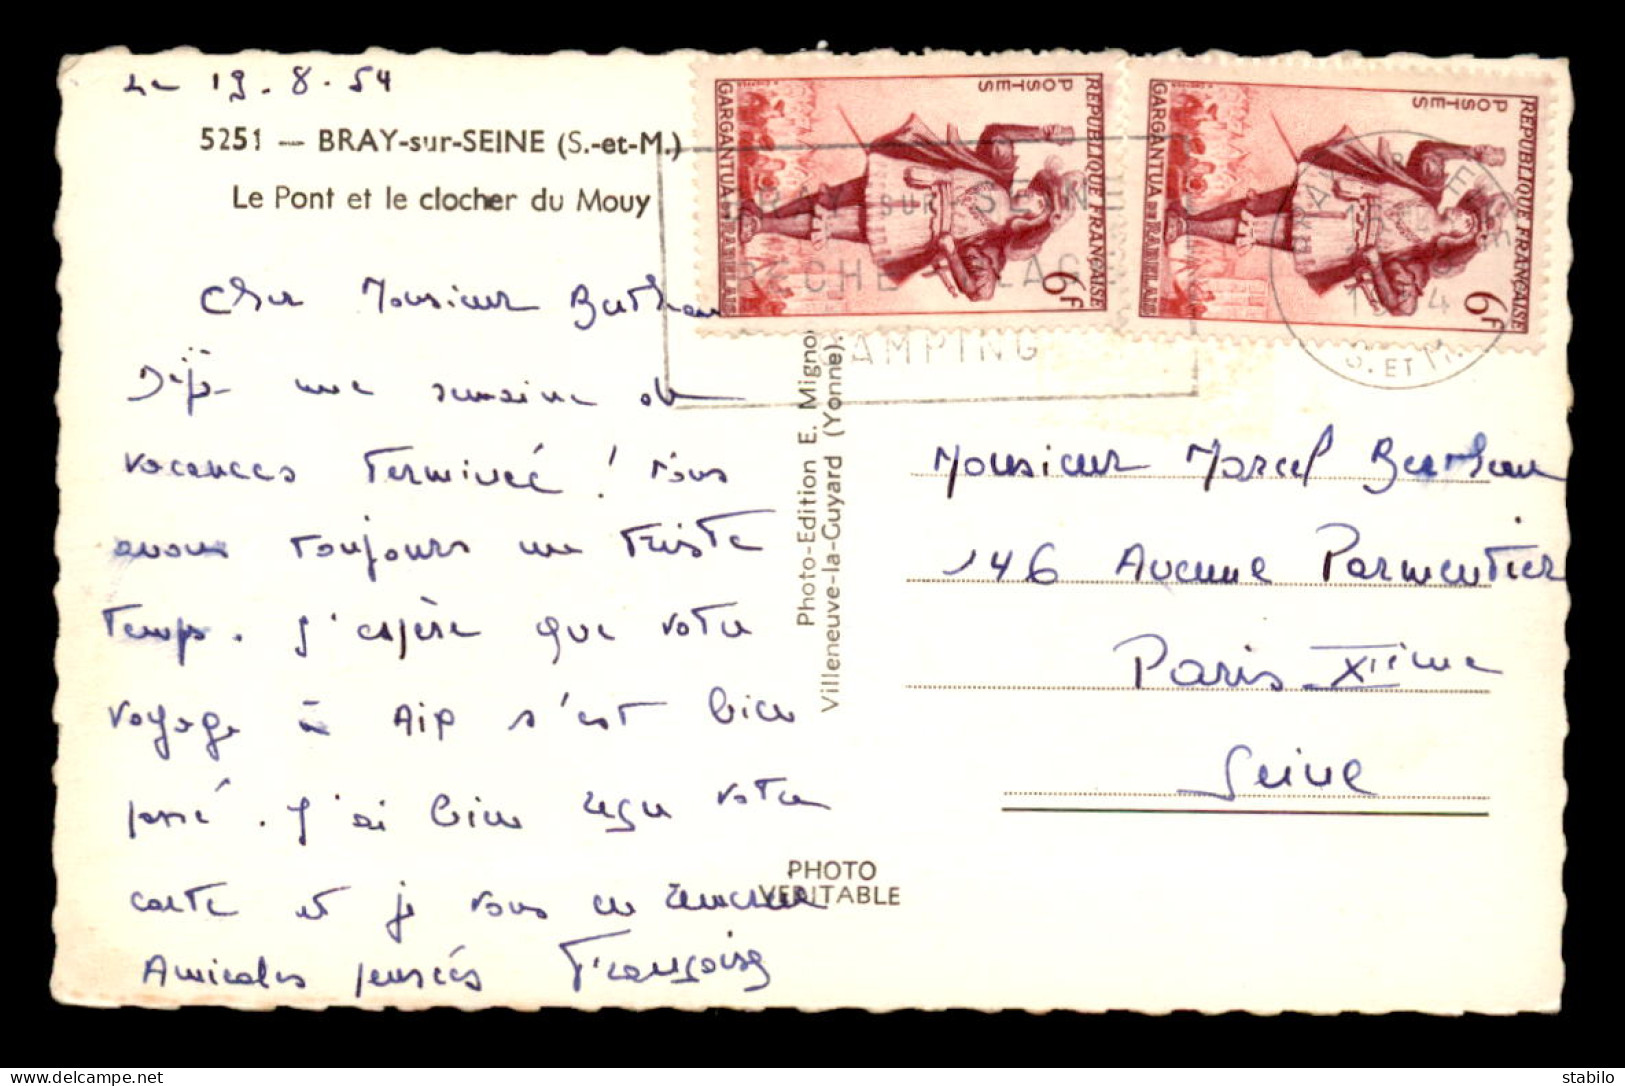 Le 19.8.54
5251 — BRAY-sur-SEINE (S.-et-M.)
Le Pont et le clocher du Mouy
Cher Monsieur
Déjà une semaine de
vacances terminée ! Nous
avons toujours un triste
temps. J'espère que votre
voyage à Aip s'est bien
passé. J'ai bien reçu votre
carte et je vous en remercie
Amicales pensées Françoise
Photo-Edition E. Mignon
Villeneuve-la-Guyard (Yonne).
PHOTO
VERITABLE
REPUBLIQUE FRANÇAISE
POSTES
GARGANTUA DE RABELAIS
6F
REPUBLIQUE FRANÇAISE
POSTES
GARGANTUA DE RABELAIS
6F
BRAY SUR SEINE
PECHE PLAGE
CAMPING
S. ET M.
Monsieur Marcel
146 Avenue Parmentier
Paris XIième
Seine
stabilo